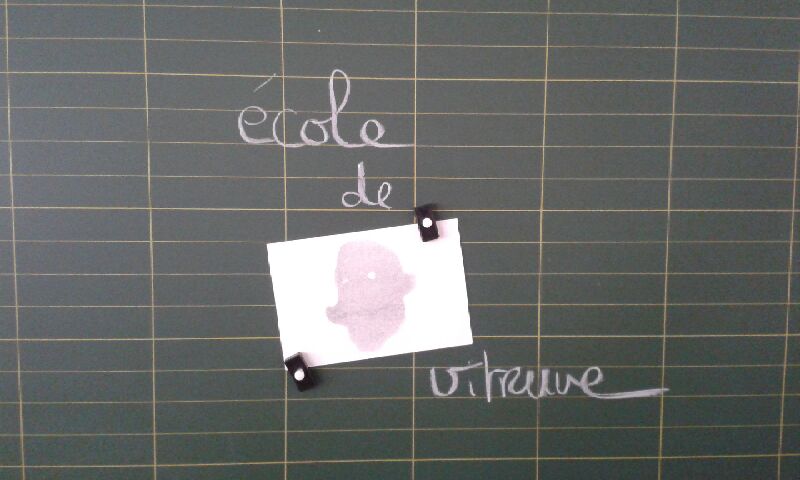 école
de
vitruve